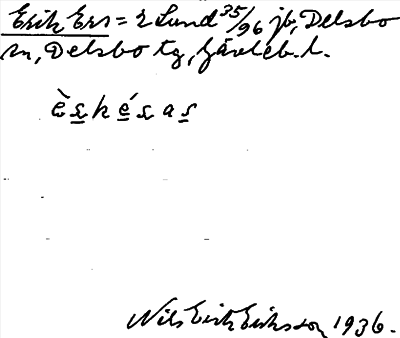 Erik Ers = 2 Lund 35/96 jb, Delsbo
sn, Delsbo tg, Gävleb. l.
è s k é s a s
Nils Erik Eriksson 1936.